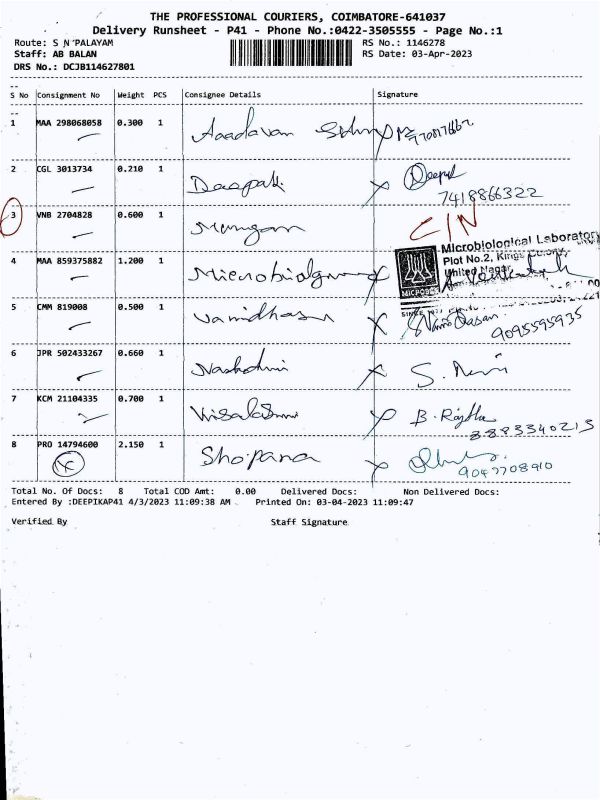 THE PROFESSIONAL COURIERS, COIMBATORE-641037
Delivery Runsheet - P41 - Phone No.:0422-3505555 - Page No.:1
Route: S N PALAYAM RS No.: 1146278
Staff: AB BALAN RS Date: 03-Apr-2023
DRS No.: DCJB114627801
S No Consignment No Weight PCS Consignee Details Signature
1 MAA 298068058 0.300 1 Aaadavan
2 CGL 3013734 0.210 1 Deepak X Deepak
7418866322
3 VNB 2704828 0.600 1 Murugan C/N
Microbiological Laboratory
Plot No.2, Kings Colony,
United Nagar,
4 MAA 859375882 1.200 1 X
MICROBI
5 CMM 819008 0.500 1 Vamidhasan X
9095595935
6 JPR 502433267 0.660 1 X S.
7 KCM 21104335 0.700 1 X B.
8883340213
8 PRO 14794600 2.150 1 Shopana X
9047708910
Total No. Of Docs: 8 Total COD Amt: 0.00 Delivered Docs: Non Delivered Docs:
Entered By :DEEPIKAP41 4/3/2023 11:09:38 AM . Printed On: 03-04-2023 11:09:47
Verified By Staff Signature